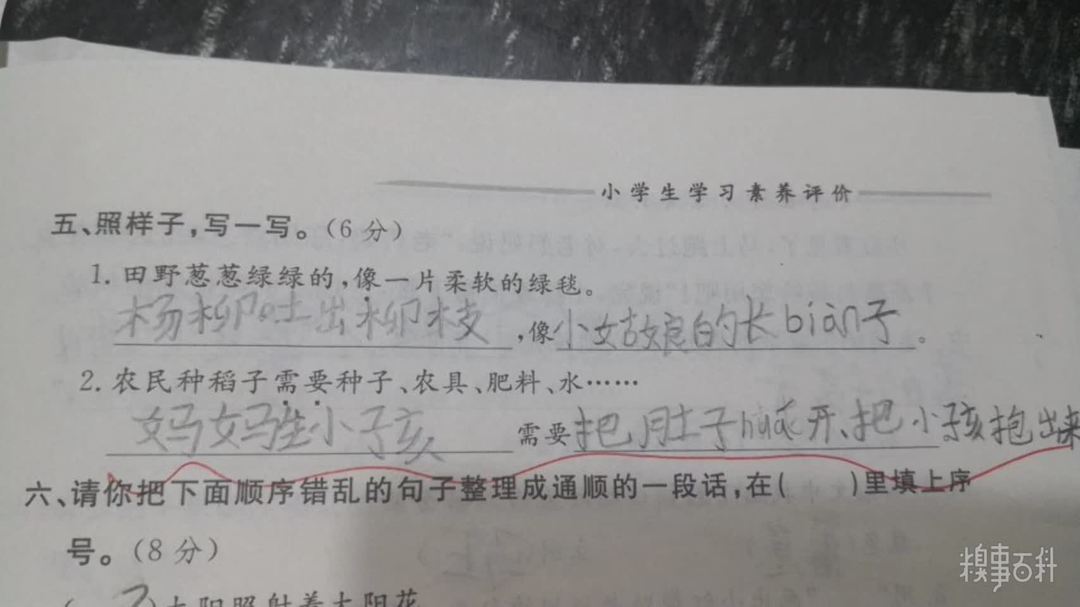 小学生学习素养评价
五、照样子,写一写。(6分)
1.田野葱葱绿绿的,像一片柔软的绿毯。
杨柳吐出柳枝,像小女姑娘的长biàn子。
2.农民种稻子需要种子、农具、肥料、水……
妈妈生小子孩需要把肚子huá开、把小孩抱出来
六、请你把下面顺序错乱的句子整理成通顺的一段话,在( )里填上序
号。(8分)
太阳照射着太阳花
糗事百科